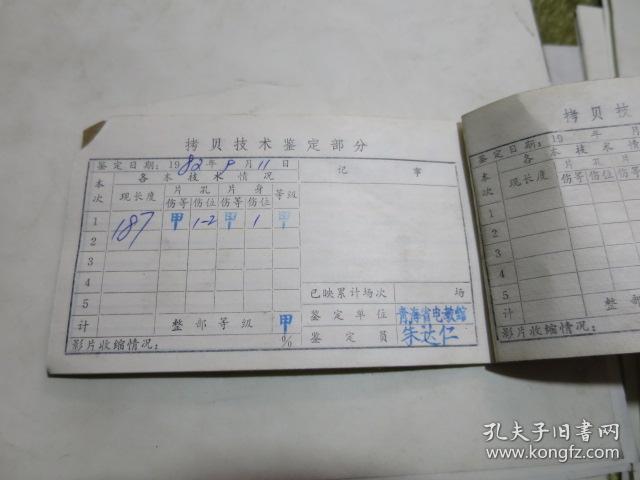 拷贝技术鉴定部分
鉴定日期：1982年9月11日
本次 各本技术情况 记事
现长度 片孔 片身 等级
伤等 伤位 伤等 伤位
1 187 甲 1-2 甲 1 甲
2
3
4
5
已映累计场次 场
计 整部等级 甲
鉴定单位 青海省电教馆
影片收缩情况： %
鉴定员 朱达仁
拷贝技
鉴定日期：19 年 月
本次 各本技术情
现长度 片孔 片
伤等 伤位 伤等 伤位
1
2
3
4
5
计 整部
影片收缩情况：
孔夫子旧书网
www.kongfz.com